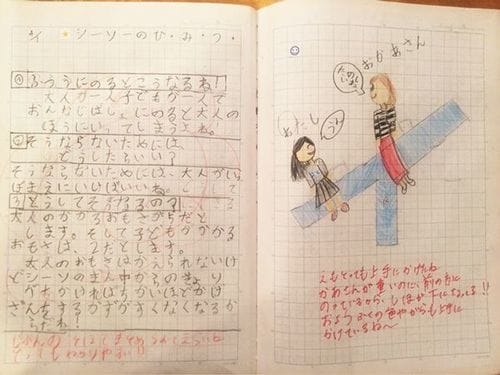 シーソーのひ・み・つ・
ふつうにのるとこうなるね!
大人が一人子どもが一人で
おんなじばしょにのると大人の
ほうにいってしまうよね。
そうならないためには、
どうしたらいい?
そうならないためには、大人がい
まえにいけばいいね。
どうしてそうなるの?
大人のかかるおもさが5だと
します。そして子どもがかかる
おもさは、2だとします。
大人のおもさはかえられないけ
どシーソーのまん中からのきょり
がちかければちかいほどかけ
ざんをするかずがすくなくなるか
らだね!
おかあさん
わたし
うん
えもとっても上手にかけたね
かあさんが重いのに、前の方に
のっているから、しほが下になってる!!
おようふくの色やがらも上手に
かけているね〜